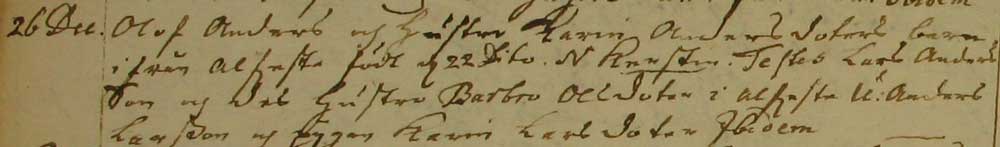 26 Dec. Olof Anders och Hustro Karin Anders doters barn
ifrån Alfzesta födt d 22 Dito. N Kerstin. Testes Lars Anders
Son och des Hustro Barbro Ols doter i Alfzesta U: Anders
Larsson och pygan Karin Lars doter Ibidem